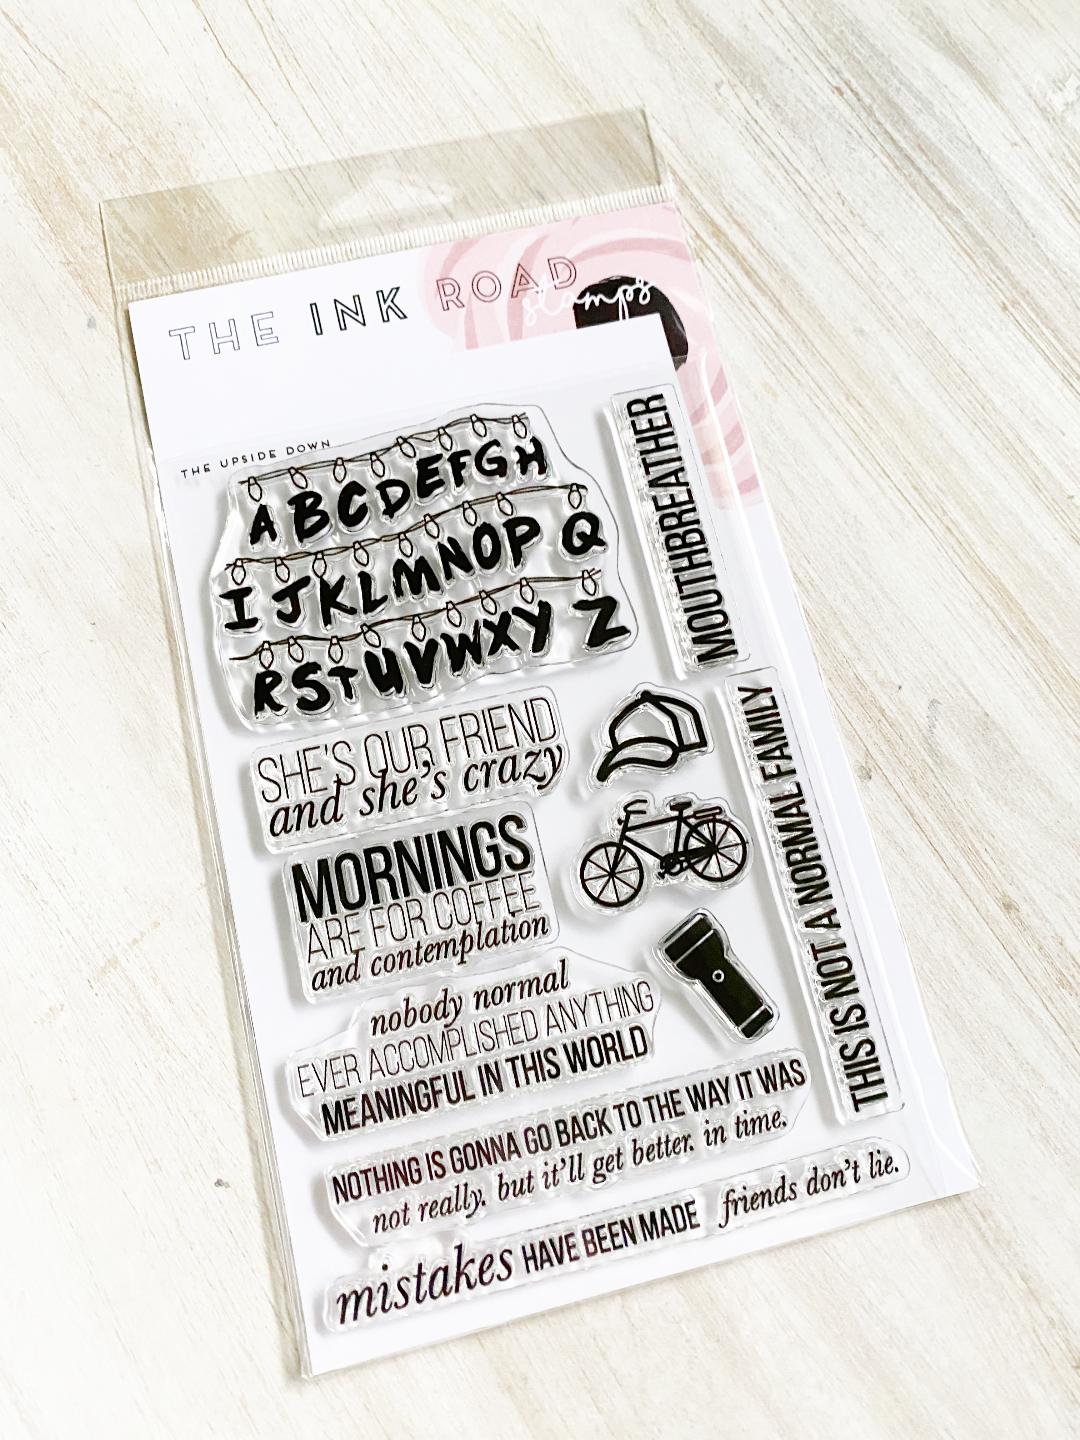 THE INK ROAD
stamps
THE UPSIDE DOWN
ABCDEFGH
IJKLMNOP Q
RSTUVWXY Z
MOUTHBREATHER
SHE'S OUR FRIEND
and she's crazy
MORNINGS
ARE FOR COFFEE
and contemplation
THIS IS NOT A NORMAL FAMILY
nobody normal
EVER ACCOMPLISHED ANYTHING
MEANINGFUL IN THIS WORLD
NOTHING IS GONNA GO BACK TO THE WAY IT WAS
not really. but it'll get better. in time.
friends don't lie.
mistakes HAVE BEEN MADE